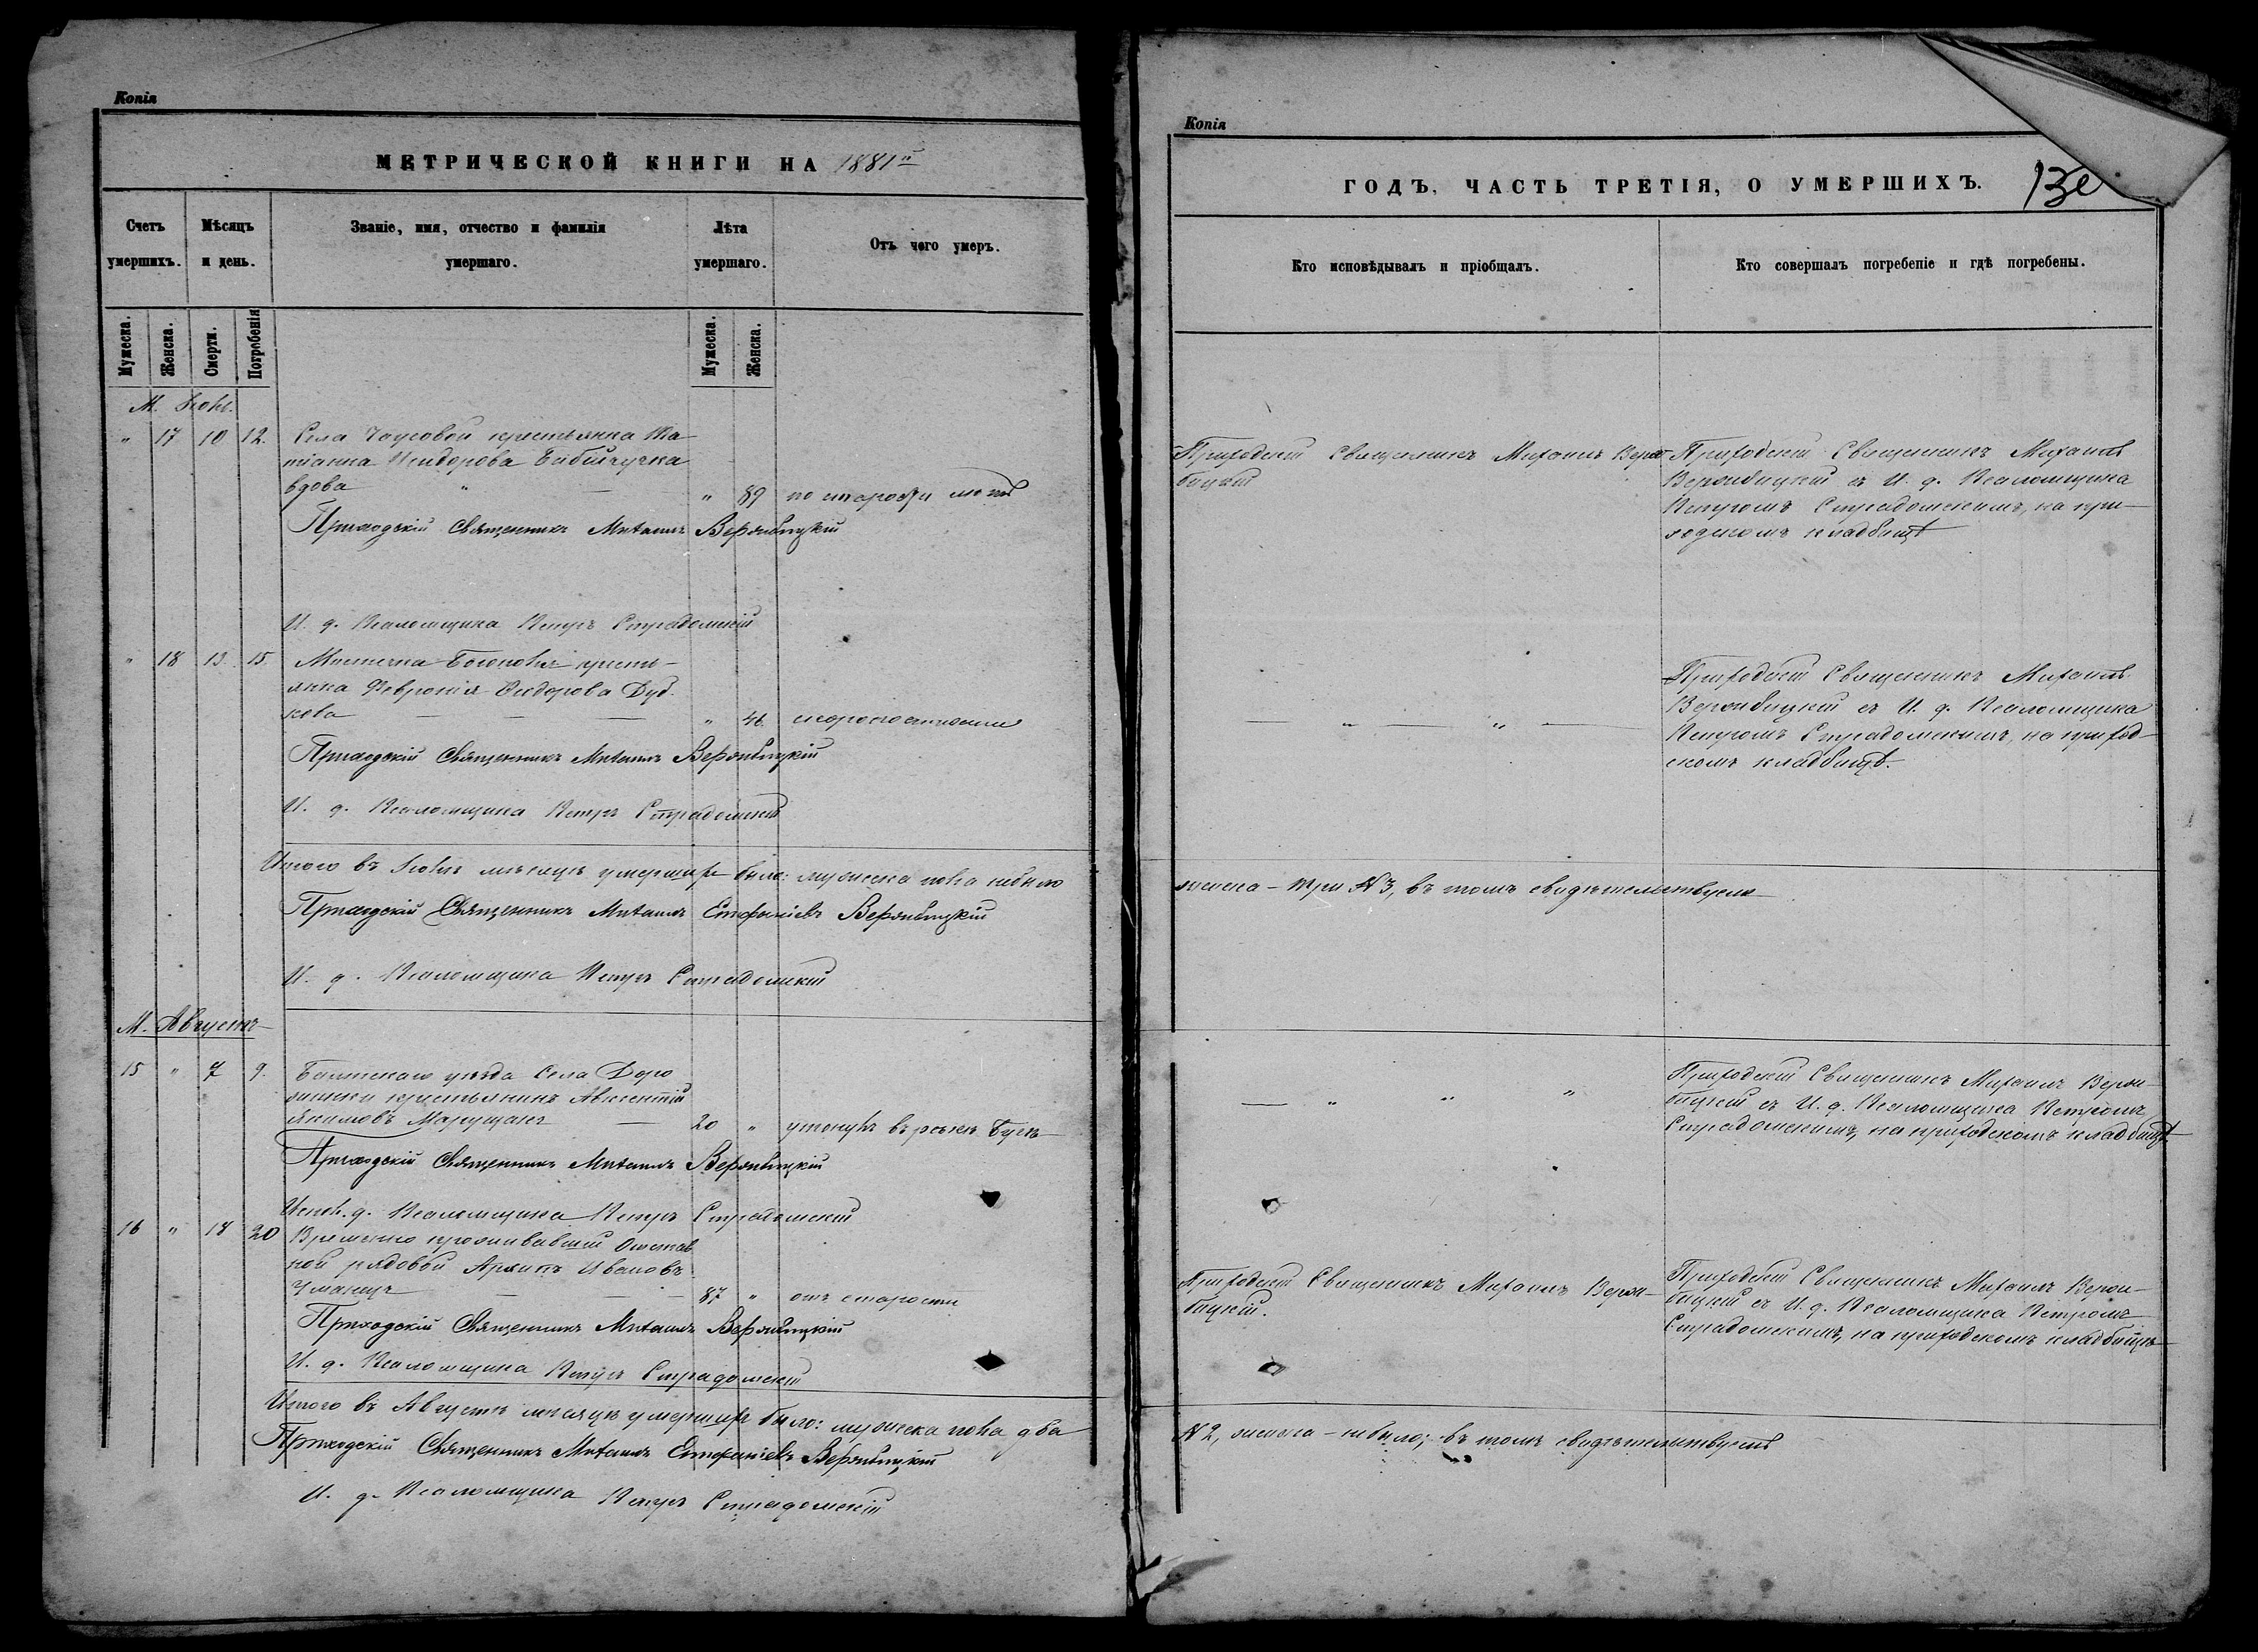 Копія
МЕТРИЧЕСКОЙ КНИГИ НА 1881й
Счетъ умершихъ.
Мѣсяцъ и день.
Званіе, имя, отчество и фамилія умершаго.
Лѣта умершаго.
Отъ чего умеръ.
Мужеска.
Женска.
Смерти.
Погребенія
Мужеска.
Женска.
М. Іюль.
" 17 10 12. Села Чаусовой крестьянка Та-
тіанна Исидорова
вдова " — " 89 по старости лѣтъ
Приходскій Священникъ Михаилъ Вержбицкій
И. д. Псаломщика Петръ Страдомскій
" 18 13. 15. Мѣстечка Богополя кресть-
янка Февронія Сидорова Дуб-
кова — — — " 46. скоропостижно
Приходскій Священникъ Михаилъ Вержбицкій
И. д. Псаломщика Петръ Страдомскій
Итого въ Іюлѣ мѣсяцѣ умершихъ было: мужеска пола небыло
Приходскій Священникъ Михаилъ Стефаніевъ Вержбицкій
И. д. Псаломщика Петръ Страдомскій
М. Августъ
15 " 7 9. Балтскаго уѣзда Села
крестьянинъ Авксентій
Якимовъ Марущакъ — 20 " утонулъ въ рѣкѣ Бугѣ
Приходскій Священникъ Михаилъ Вержбицкій
Испол. д. Псаломщика Петръ Страдомскій
16 " 18 20 Временно проживавшій Отстав-
ной рядовой Архипъ Ивановъ
Уманецъ — — 87 " отъ старости
Приходскій Священникъ Михаилъ Вержбицкій
И. д. Псаломщика Петръ Страдомскій
Итого въ Августѣ мѣсяцѣ умершихъ было: мужеска пола два
Приходскій Священникъ Михаилъ Стефаніевъ Вержбицкій
И. д. Псаломщика Петръ Страдомскій
Копія
ГОДЪ, ЧАСТЬ ТРЕТІЯ, О УМЕРШИХЪ.
Кто исповѣдывалъ и пріобщалъ.
Кто совершалъ погребеніе и гдѣ погребены.
Приходскій Священникъ Михаилъ Верж-
бицкій
Приходскій Священникъ Михаилъ
Вержбицкій съ И. д. Псаломщика
Петромъ Страдомскимъ, на при-
ходскомъ кладбищѣ
— " — " —
Приходскій Священникъ Михаилъ
Вержбицкій съ И. д. Псаломщика
Петромъ Страдомскимъ, на приход-
скомъ кладбищѣ.
женска — три №3, въ томъ свидѣтельствуемъ
— " " "
Приходскій Священникъ Михаилъ Верж-
бицкій съ И. д. Псаломщика Петромъ
Страдомскимъ, на приходскомъ кладбищѣ
Приходскій Священникъ Михаилъ Верж-
бицкій.
Приходскій Священникъ Михаилъ Верж-
бицкій съ И. д. Псаломщика Петромъ
Страдомскимъ, на приходскомъ кладбищѣ
№2, женска — небыло; въ томъ свидѣтельствуемъ